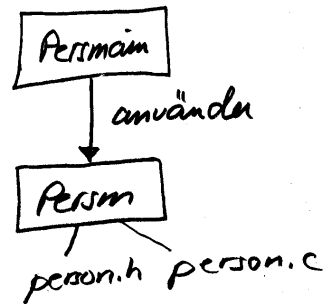 Persmain
använder
Persm
person.h person.c